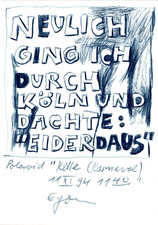 NEULICH
GING ICH
DURCH
KÖLN UND
DACHTE:
"EIDERDAUS"
Polaroid "Kölle (Karneval)
11 XI 94 11 40"